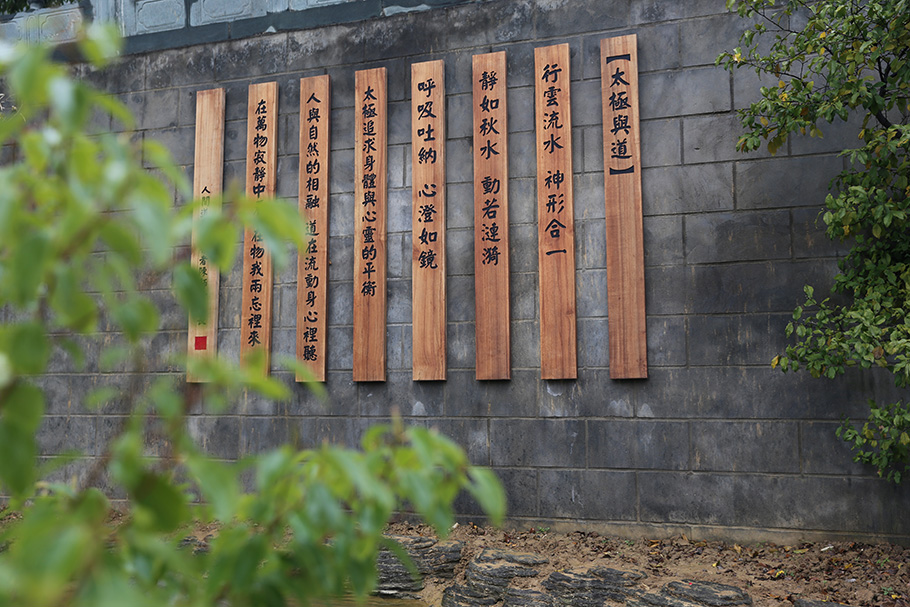 【太極與道】
行雲流水 神形合一
靜如秋水 動若漣漪
呼吸吐納 心澄如鏡
太極追求身體與心靈的平衡
人與自然的相融 道在流動身心裡聽
在萬物寂靜中 在物我兩忘裡來
人間